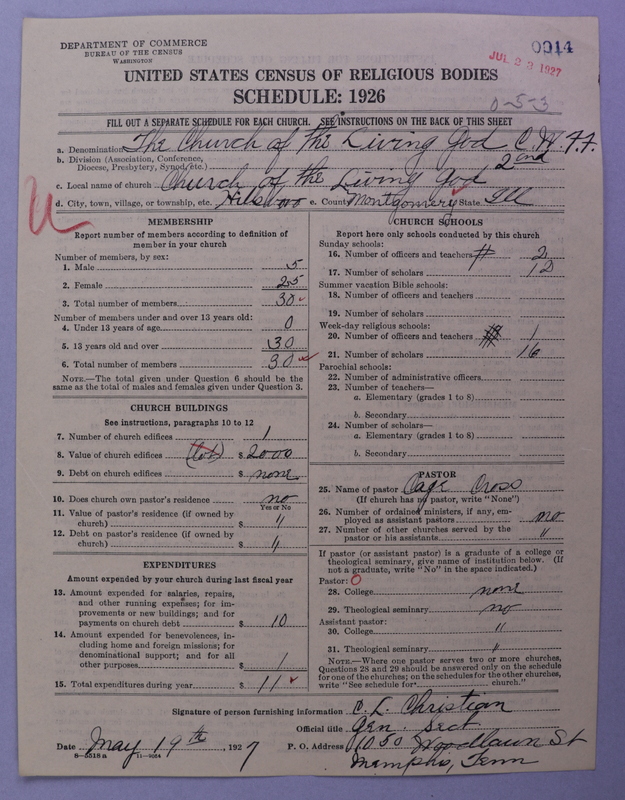 DEPARTMENT OF COMMERCE
BUREAU OF THE CENSUS
WASHINGTON
0014
JUL 23 1927
UNITED STATES CENSUS OF RELIGIOUS BODIES
SCHEDULE: 1926
0-5-3
FILL OUT A SEPARATE SCHEDULE FOR EACH CHURCH. SEE INSTRUCTIONS ON THE BACK OF THIS SHEET
a. Denomination The Church of the Living God C.W.F.F.
b. Division (Association, Conference, Diocese, Presbytery, Synod, etc.) 2nd
c. Local name of church Church of the Living God
d. City, town, village, or township, etc. Hillsboro e. County Montgomery State Ill
MEMBERSHIP
Report number of members according to definition of member in your church
Number of members, by sex:
1. Male 5
2. Female 25
3. Total number of members 30
Number of members under and over 13 years old:
4. Under 13 years of age 0
5. 13 years old and over 30
6. Total number of members 30
NOTE.—The total given under Question 6 should be the same as the total of males and females given under Question 3.
CHURCH BUILDINGS
See instructions, paragraphs 10 to 12
7. Number of church edifices 1
8. Value of church edifices (lot) $ 2000
9. Debt on church edifices $ none
10. Does church own pastor's residence no
Yes or No
11. Value of pastor's residence (if owned by church) $ "
12. Debt on pastor's residence (if owned by church) $ "
EXPENDITURES
Amount expended by your church during last fiscal year
13. Amount expended for salaries, repairs, and other running expenses; for improvements or new buildings; and for payments on church debt $ 10
14. Amount expended for benevolences, including home and foreign missions; for denominational support; and for all other purposes $ 1
15. Total expenditures during year $ 11
CHURCH SCHOOLS
Report here only schools conducted by this church
Sunday schools:
16. Number of officers and teachers # 2
17. Number of scholars 12
Summer vacation Bible schools:
18. Number of officers and teachers
19. Number of scholars
Week-day religious schools:
20. Number of officers and teachers # 1
21. Number of scholars 16
Parochial schools:
22. Number of administrative officers
23. Number of teachers—
a. Elementary (grades 1 to 8)
b. Secondary
24. Number of scholars—
a. Elementary (grades 1 to 8)
b. Secondary
PASTOR
25. Name of pastor Cross
(If church has no pastor, write "None")
26. Number of ordained ministers, if any, employed as assistant pastors no
27. Number of other churches served by the pastor or his assistants "
If pastor (or assistant pastor) is a graduate of a college or theological seminary, give name of institution below. (If not a graduate, write "No" in the space indicated.)
Pastor: 0
28. College none
29. Theological seminary no
Assistant pastor:
30. College "
31. Theological seminary "
NOTE.—Where one pastor serves two or more churches, Questions 28 and 29 should be answered only on the schedule for one of the churches; on the schedules for the other churches, write "See schedule for church."
Signature of person furnishing information C. L. Christian
Official title Gen. Sect
Date May 19th, 1927 P. O. Address 1050 Woodlawn St
Memphis, Tenn
8-5518a 11-9064